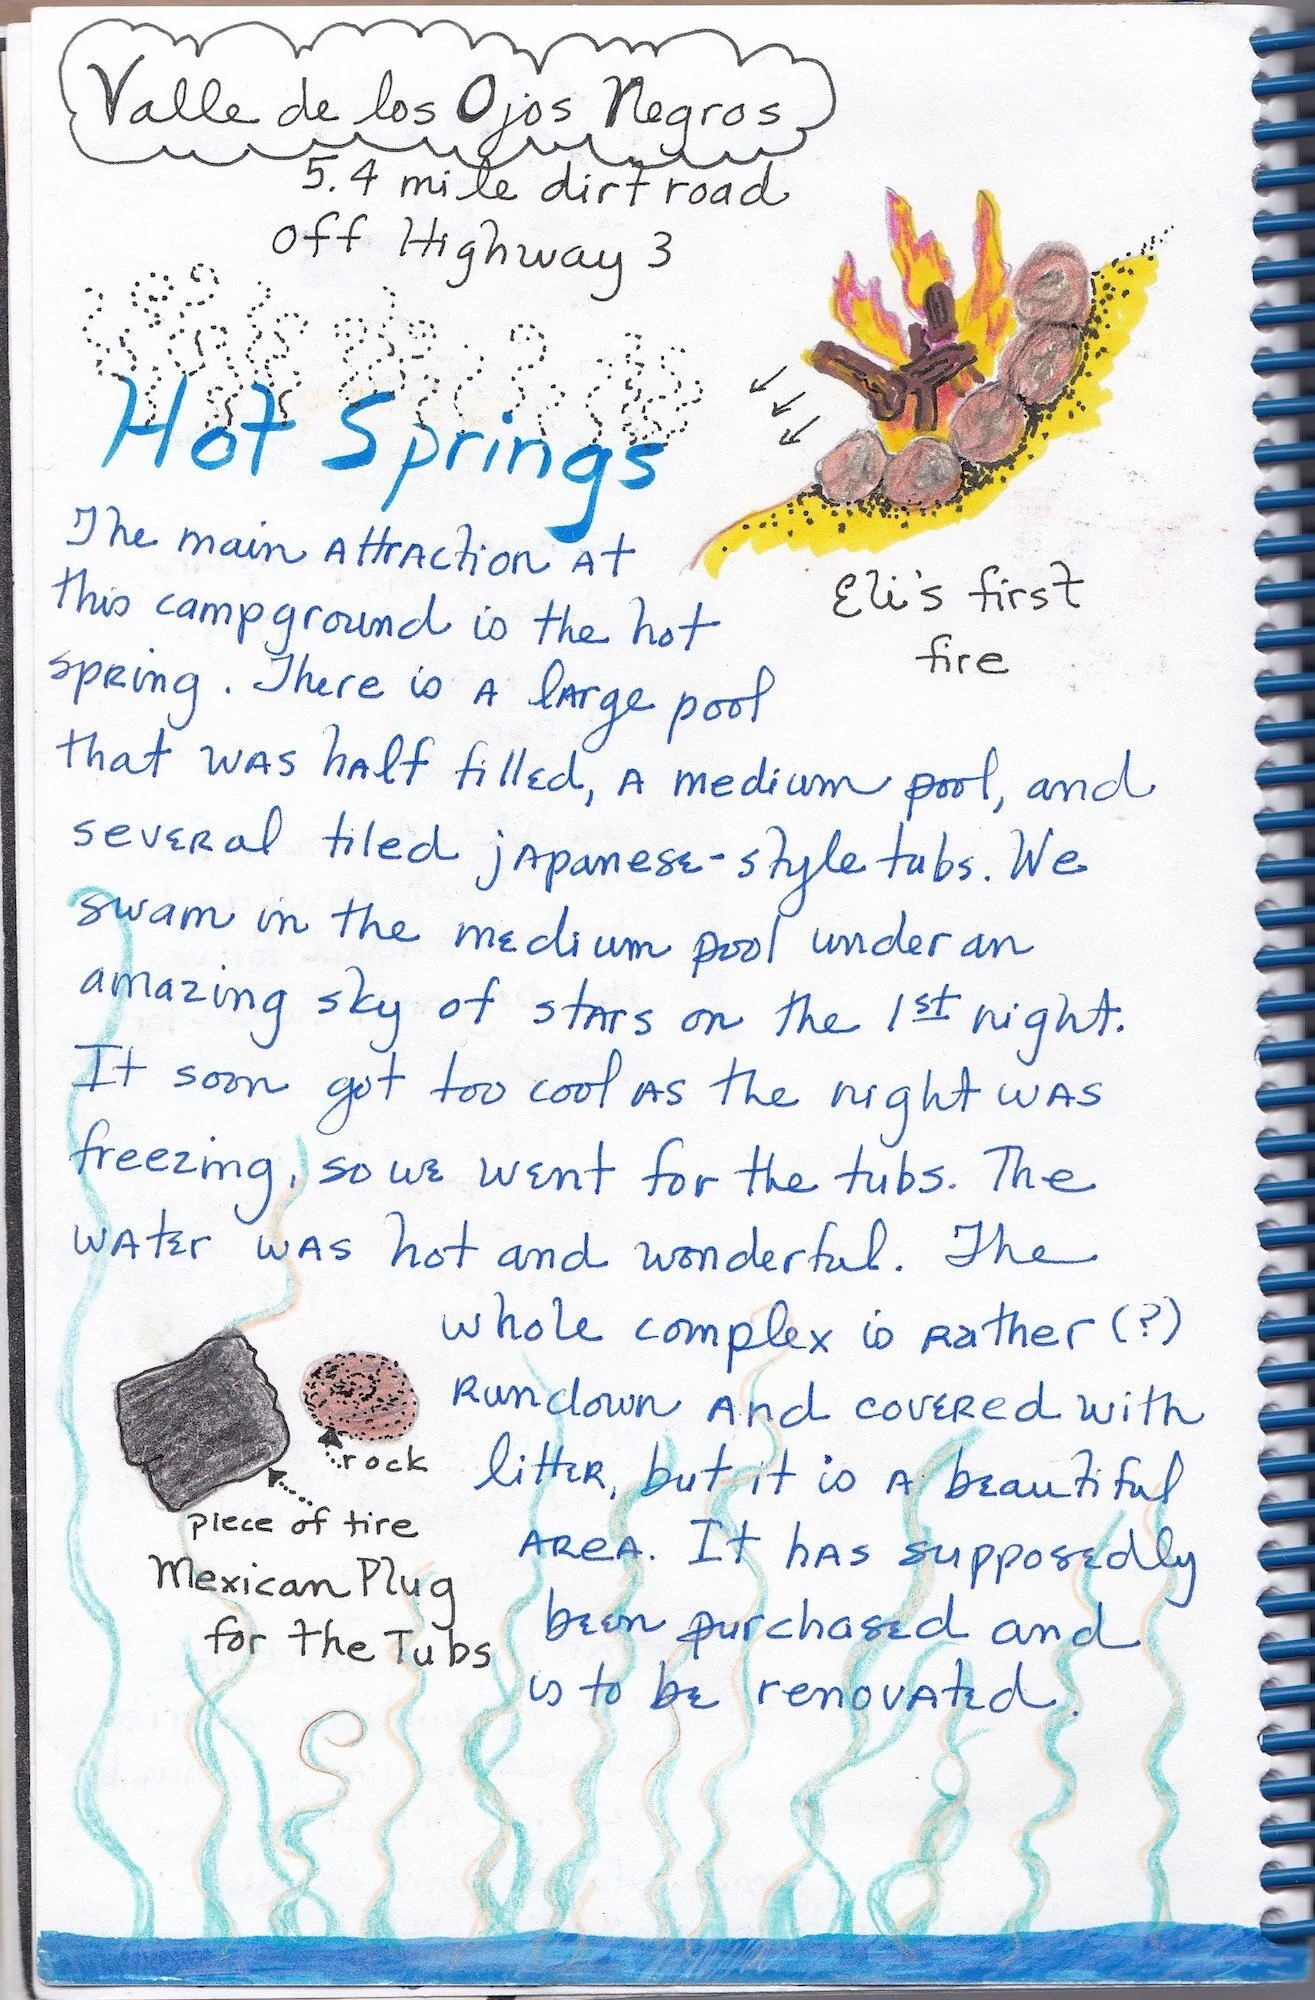 Valle de los Ojos Negros
5.4 mile dirt road
off Highway 3
Hot Springs
Eli's first
fire
The main attraction at
this campground is the hot
spring. There is a large pool
that was half filled, a medium pool, and
several tiled japanese-style tubs. We
swam in the medium pool under an
amazing sky of stars on the 1st night.
It soon got too cool as the night was
freezing, so we went for the tubs. The
water was hot and wonderful. The
whole complex is rather (?)
rundown and covered with
litter, but it is a beautiful
area. It has supposedly
been purchased and
is to be renovated.
rock
piece of tire
Mexican Plug
for the Tubs